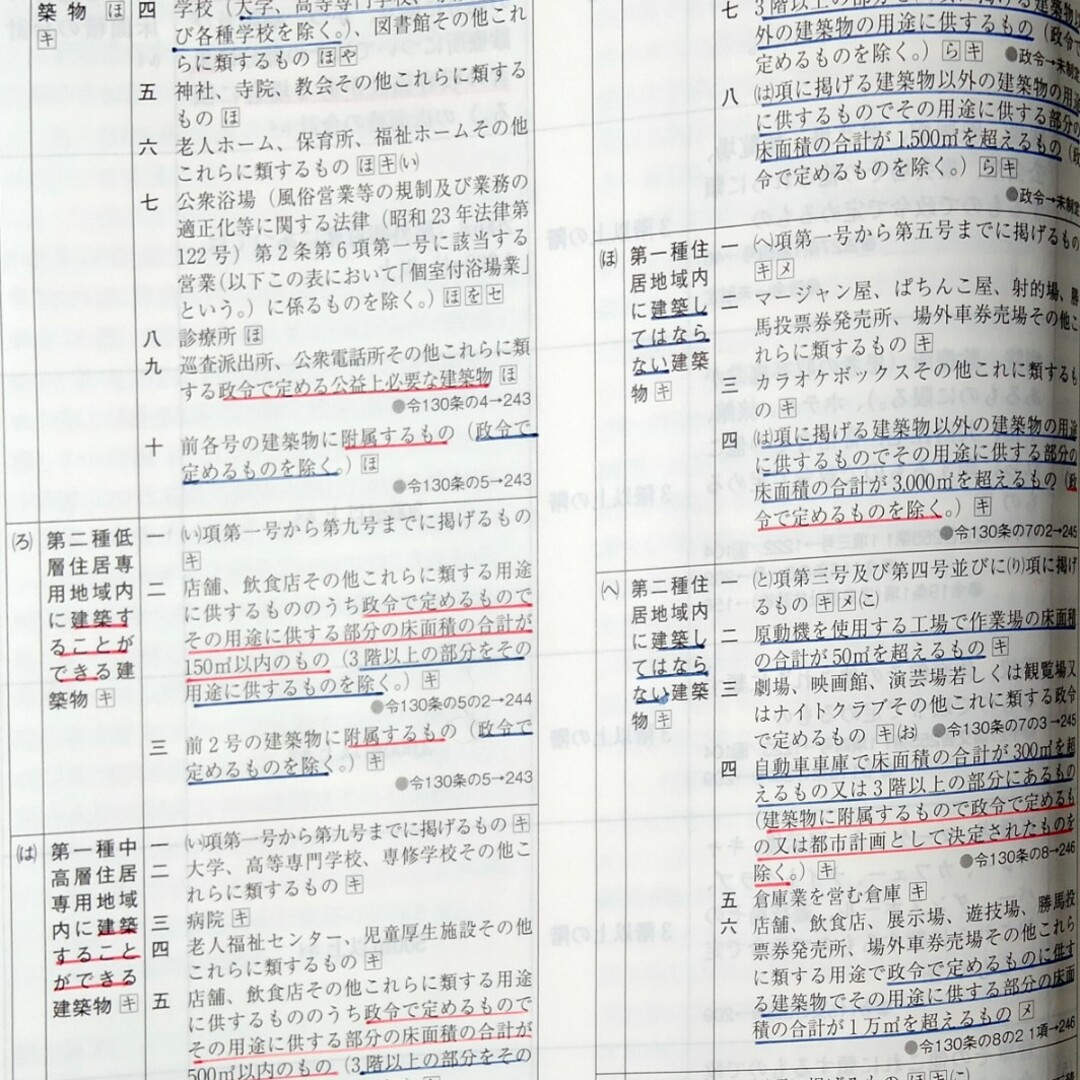 築物 ほ
キ
四 学校（大学、高等専門学校、
び各種学校を除く。）、図書館その他これ
らに類するもの ほ や
五 神社、寺院、教会その他これらに類する
もの ほ
六 老人ホーム、保育所、福祉ホームその他
これらに類するもの ほ キ (い)
七 公衆浴場（風俗営業等の規制及び業務の
適正化等に関する法律（昭和23年法律第
122号）第2条第6項第一号に該当する
営業(以下この表において「個室付浴場業」
という。）に係るものを除く。） ほ を セ
八 診療所 ほ
九 巡査派出所、公衆電話所その他これらに類
する政令で定める公益上必要な建築物 ほ
●令130条の4→243
十 前各号の建築物に附属するもの（政令で
定めるものを除く。） ほ
●令130条の5→243
(ろ) 第二種低
層住居専
用地域内
に建築す
ることが
できる建
築物 キ
一 (い)項第一号から第九号までに掲げるもの
キ
二 店舗、飲食店その他これらに類する用途
に供するもののうち政令で定めるもので
その用途に供する部分の床面積の合計が
150㎡以内のもの（3階以上の部分をその
用途に供するものを除く。） キ
●令130条の5の2→244
三 前2号の建築物に附属するもの（政令で
定めるものを除く。） キ
●令130条の5→243
(は) 第一種中
高層住居
専用地域
内に建築
すること
ができる
建築物 キ
一 (い)項第一号から第九号までに掲げるもの キ
二 大学、高等専門学校、専修学校その他こ
れらに類するもの キ
三 病院 キ
四 老人福祉センター、児童厚生施設その他
これらに類するもの キ
五 店舗、飲食店その他これらに類する用途
に供するもののうち政令で定めるもので
その用途に供する部分の床面積の合計が
500㎡以内のもの（3階以上の部分をその
七 3階以上の部分を
外の建築物の用途に供するもの（政令で
定めるものを除く。） ら キ
●政令→未制定
八 (は)項に掲げる建築物以外の建築物の用途
に供するものでその用途に供する部分の
床面積の合計が1,500㎡を超えるもの（政
令で定めるものを除く。） ら キ
●政令→未制定
(ほ) 第一種住
居地域内
に建築し
てはなら
ない建築
物 キ
一 (へ)項第一号から第五号までに掲げるもの
キ メ
二 マージャン屋、ぱちんこ屋、射的場、勝
馬投票券発売所、場外車券売場その他こ
れらに類するもの キ
三 カラオケボックスその他これに類するも
の キ
四 (は)項に掲げる建築物以外の建築物の用途
に供するものでその用途に供する部分の
床面積の合計が3,000㎡を超えるもの（政
令で定めるものを除く。） キ
●令130条の7の2→245
(へ) 第二種住
居地域内
に建築し
てはなら
ない建築
物 キ
一 (と)項第三号及び第四号並びに(り)項に掲げ
るもの キ メ こ）
二 原動機を使用する工場で作業場の床面積
の合計が50㎡を超えるもの キ
三 劇場、映画館、演芸場若しくは観覧場又
はナイトクラブその他これに類する政令
で定めるもの キ (お) ●令130条の7の3→245
四 自動車車庫で床面積の合計が300㎡を超
えるもの又は3階以上の部分にあるもの
（建築物に附属するもので政令で定めるも
の又は都市計画として決定されたものを
除く。） キ
●令130条の8→246
五 倉庫業を営む倉庫 キ
六 店舗、飲食店、展示場、遊技場、勝馬投
票券発売所、場外車券売場その他これら
に類する用途で政令で定めるものに供す
る建築物でその用途に供する部分の床面
積の合計が1万㎡を超えるもの メ
●令130条の8の2 1項→246